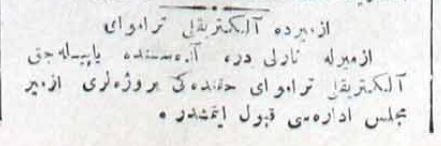 ازمیرده آلكتریقلی تراموای
ازمیرله نارلی دره آره‌سنده یاپیله‌جق
آلكتریقلی تراموای حقنده‌كی پروژه‌لری ازمیر
مجلس اداره‌سی قبول ایتمشدر ٠